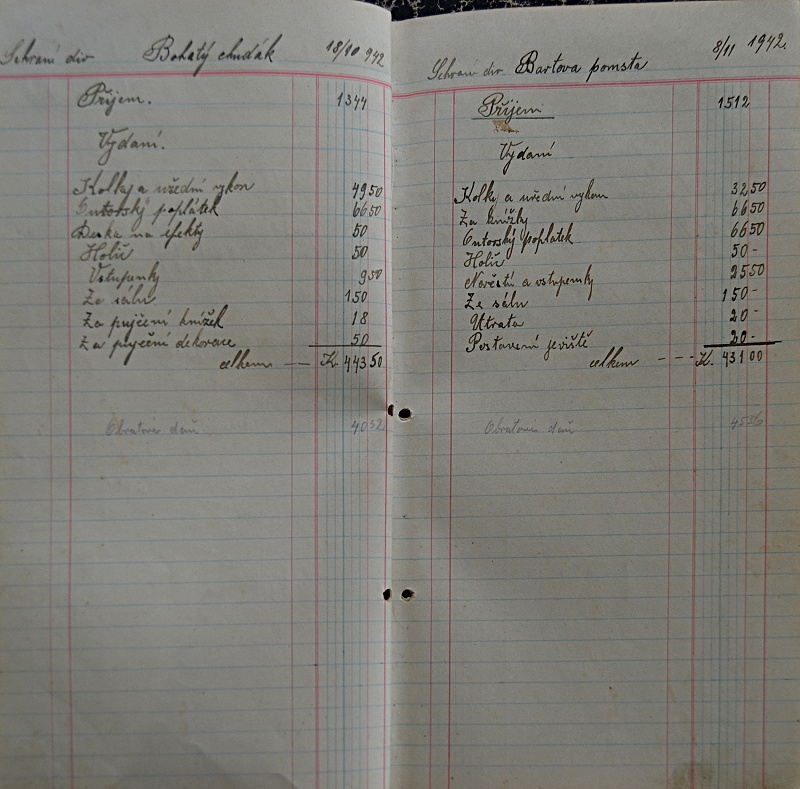 Sehraní div Bohatý chudák 18/10 942
Příjem. 1344
Vydaní.
Kolky a uřední vykon 4950
poplátek 6650
Deska na efekty 50
Holič 50
Vstupenky 950
Za sálu 150
Za pujčení knížek 18
Za pujčení dekorace 50
celkem — K. 44350
Obratová daň 4032
Sehraní div. Bartova pomsta 8/11 1942.
Příjem 1512
Vydaní
Kolky a uřední vykon 3250
Za knížky 6650
poplatek 6650
Holič 50-
a vstupenky 2550
Za sálu 150-
Utrata 20-
Postavení jeviště 20-
celkem - - - K. 43100
Obratová daň 4536